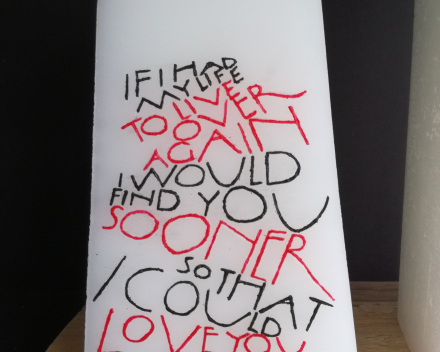 IF I HAD
MY LIFE
TO LIVE
OVER
AGAIN
I WOULD
FIND YOU
SOONER
SO THAT
I COULD
LOVE YOU